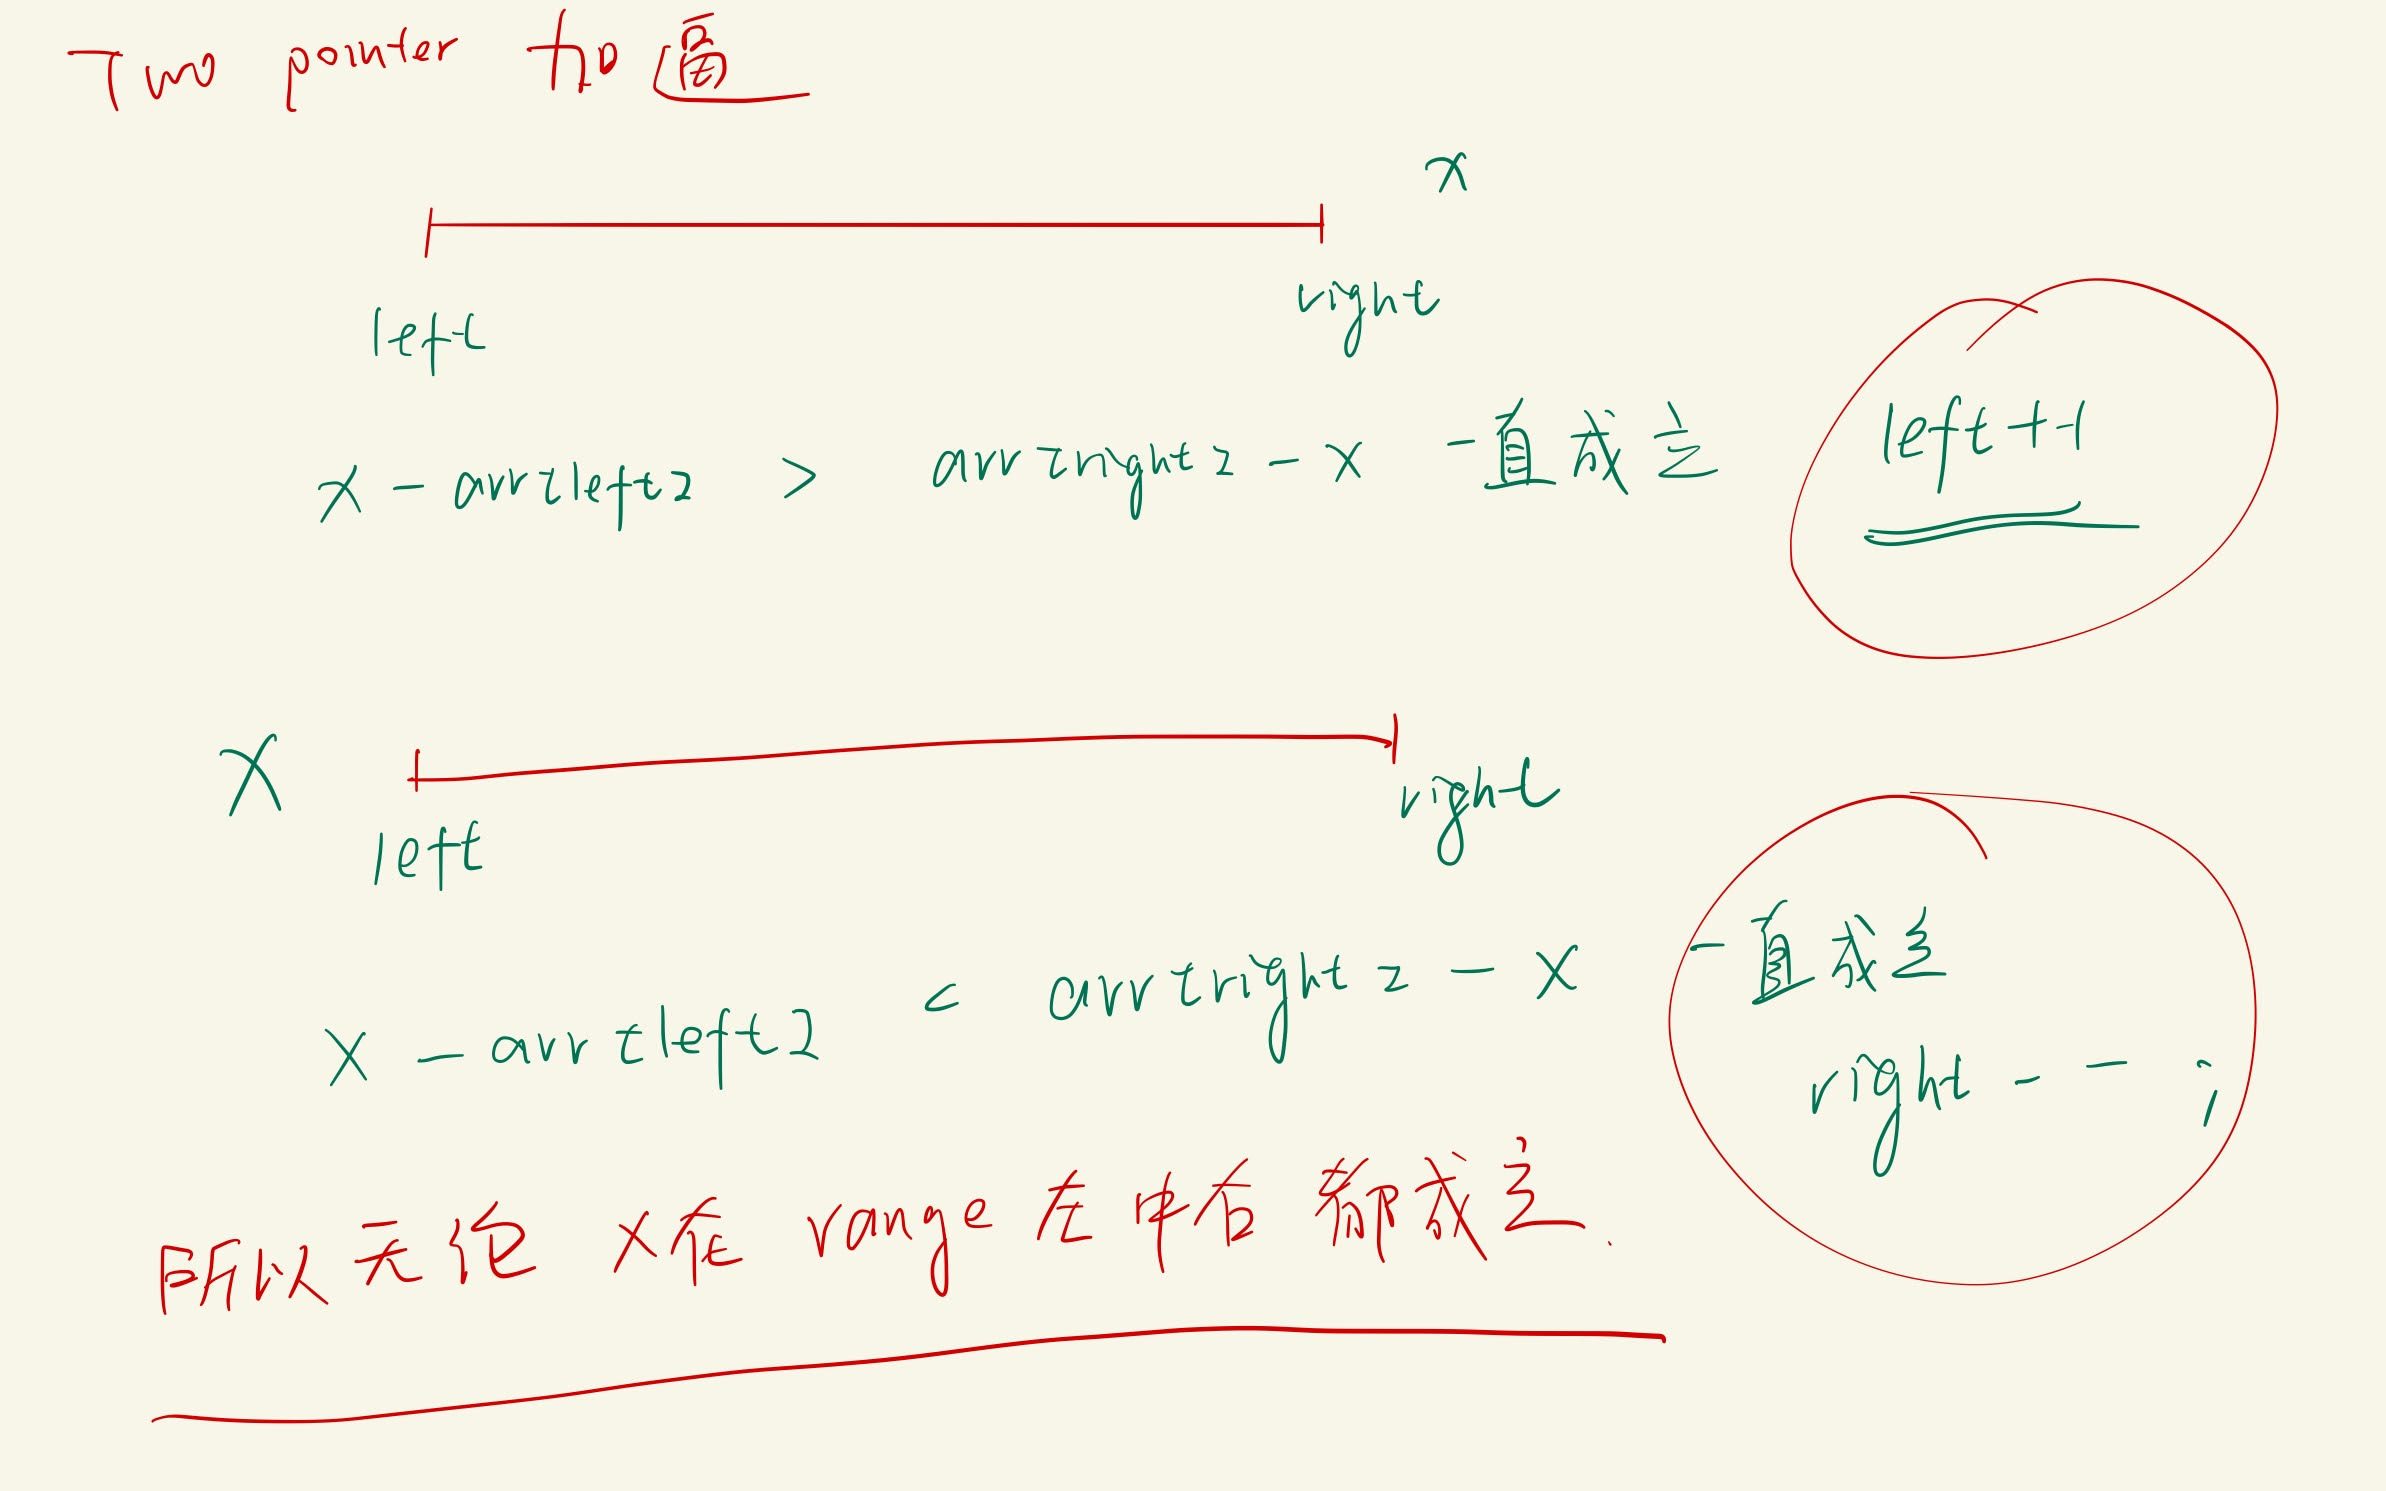 Two pointer 加逼
x
left right
x - arr[left] > arr[right] - x 一直成立 left++
x
left right
x - arr[left] < arr[right] - x 一直成立
right--;
所以无论 x在 range 左中右 都成立.